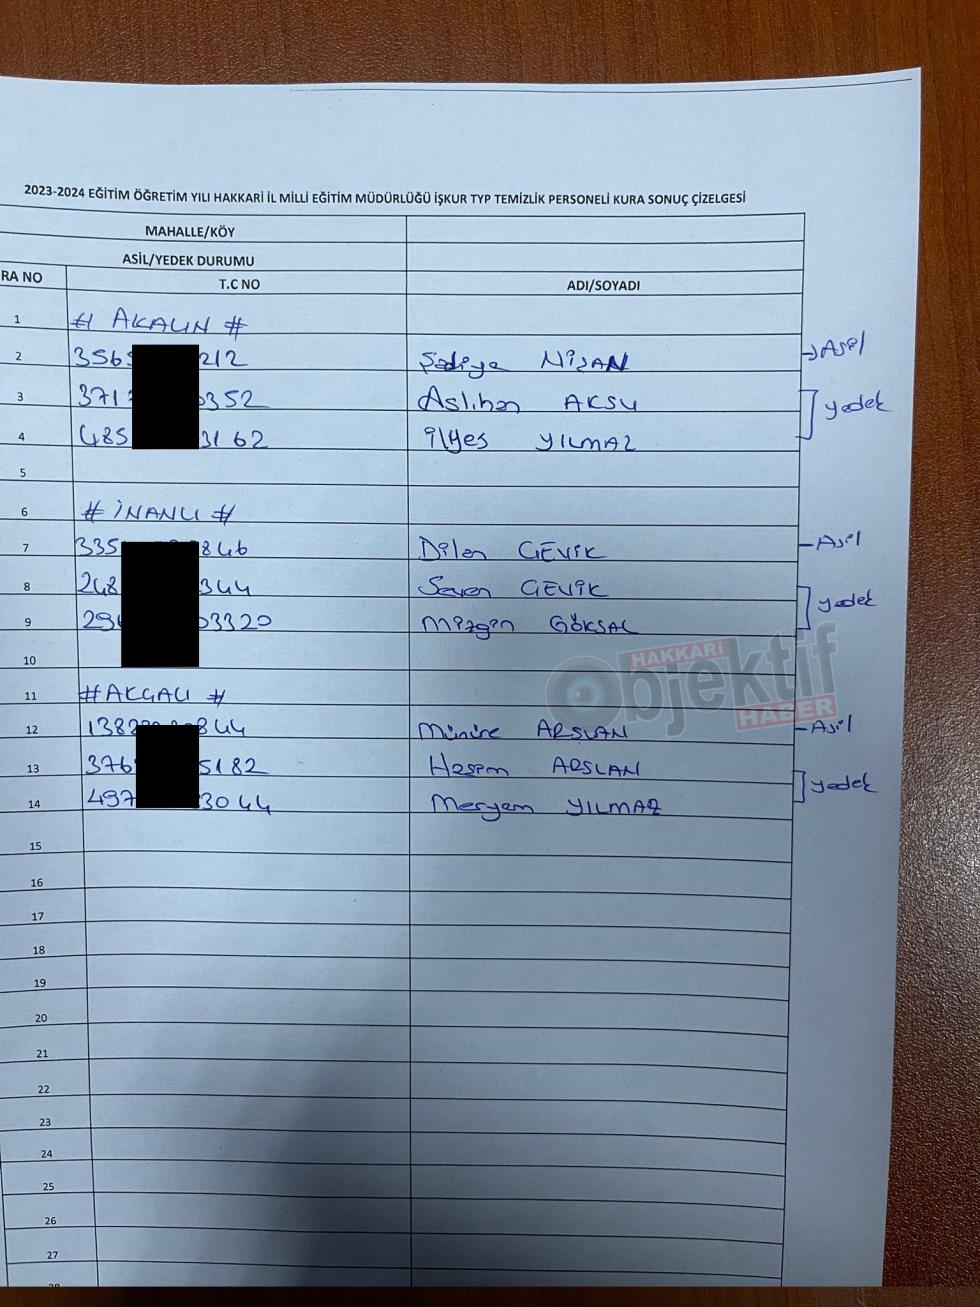 2023-2024 EĞİTİM ÖĞRETİM YILI HAKKARİ İL MİLLİ EĞİTİM MÜDÜRLÜĞÜ İŞKUR TYP TEMİZLİK PERSONELİ KURA SONUÇ ÇİZELGESİ
MAHALLE/KÖY
ASİL/YEDEK DURUMU
RA NO T.C NO ADI/SOYADI
1 # AKALIN #
2 356 212 Şadiye NİŞAN → Asil
3 371 352 Aslıhan AKSU
yedek
4 485 3162 İlyes YILMAZ
5
6 # İNANLI #
7 335 846 Dilan GEVİK - Asil
8 248 344 Seven GEVİK
yedek
9 29 03320 Mizgin GÖKSAL
10
HAKKARİ
Objektif
HABER
11 # AKÇALI #
12 1382 844 Münire ARSLAN - Asil
13 376 5182 Haşem ARSLAN
yedek
14 497 3044 Meryem YILMAZ
15
16
17
18
19
20
21
22
23
24
25
26
27